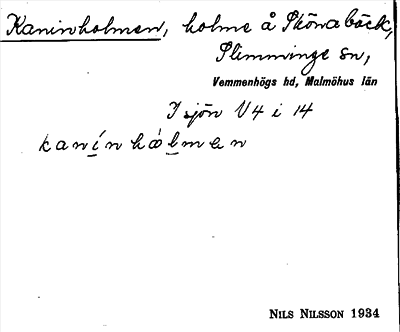 Kaninholmen, holme å Skönabäck,
Slimminge sn,
Vemmenhögs hd, Malmöhus län
I sjön V4 i 14
kanínhålmen
NILS NILSSON 1934